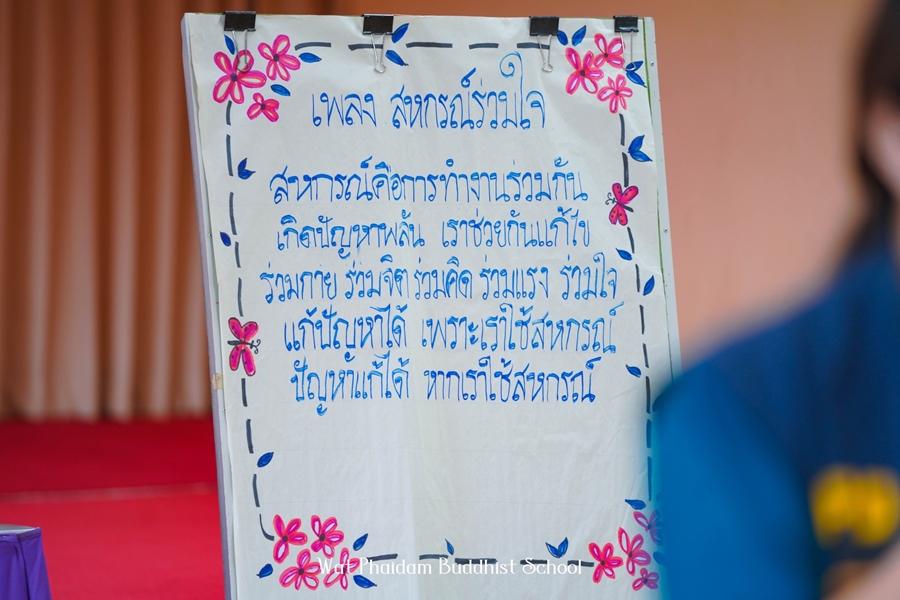 เพลง สหกรณ์ร่วมใจ
สหกรณ์คือการทำงานร่วมกัน
เกิดปัญหาพลัน เราช่วยกันแก้ไข
ร่วมกาย ร่วมจิต ร่วมคิด ร่วมแรง ร่วมใจ
แก้ปัญหาได้ เพราะเราใช้สหกรณ์
ปัญหาแก้ได้ หากเราใช้สหกรณ์
Wat Phaidam Buddhist School